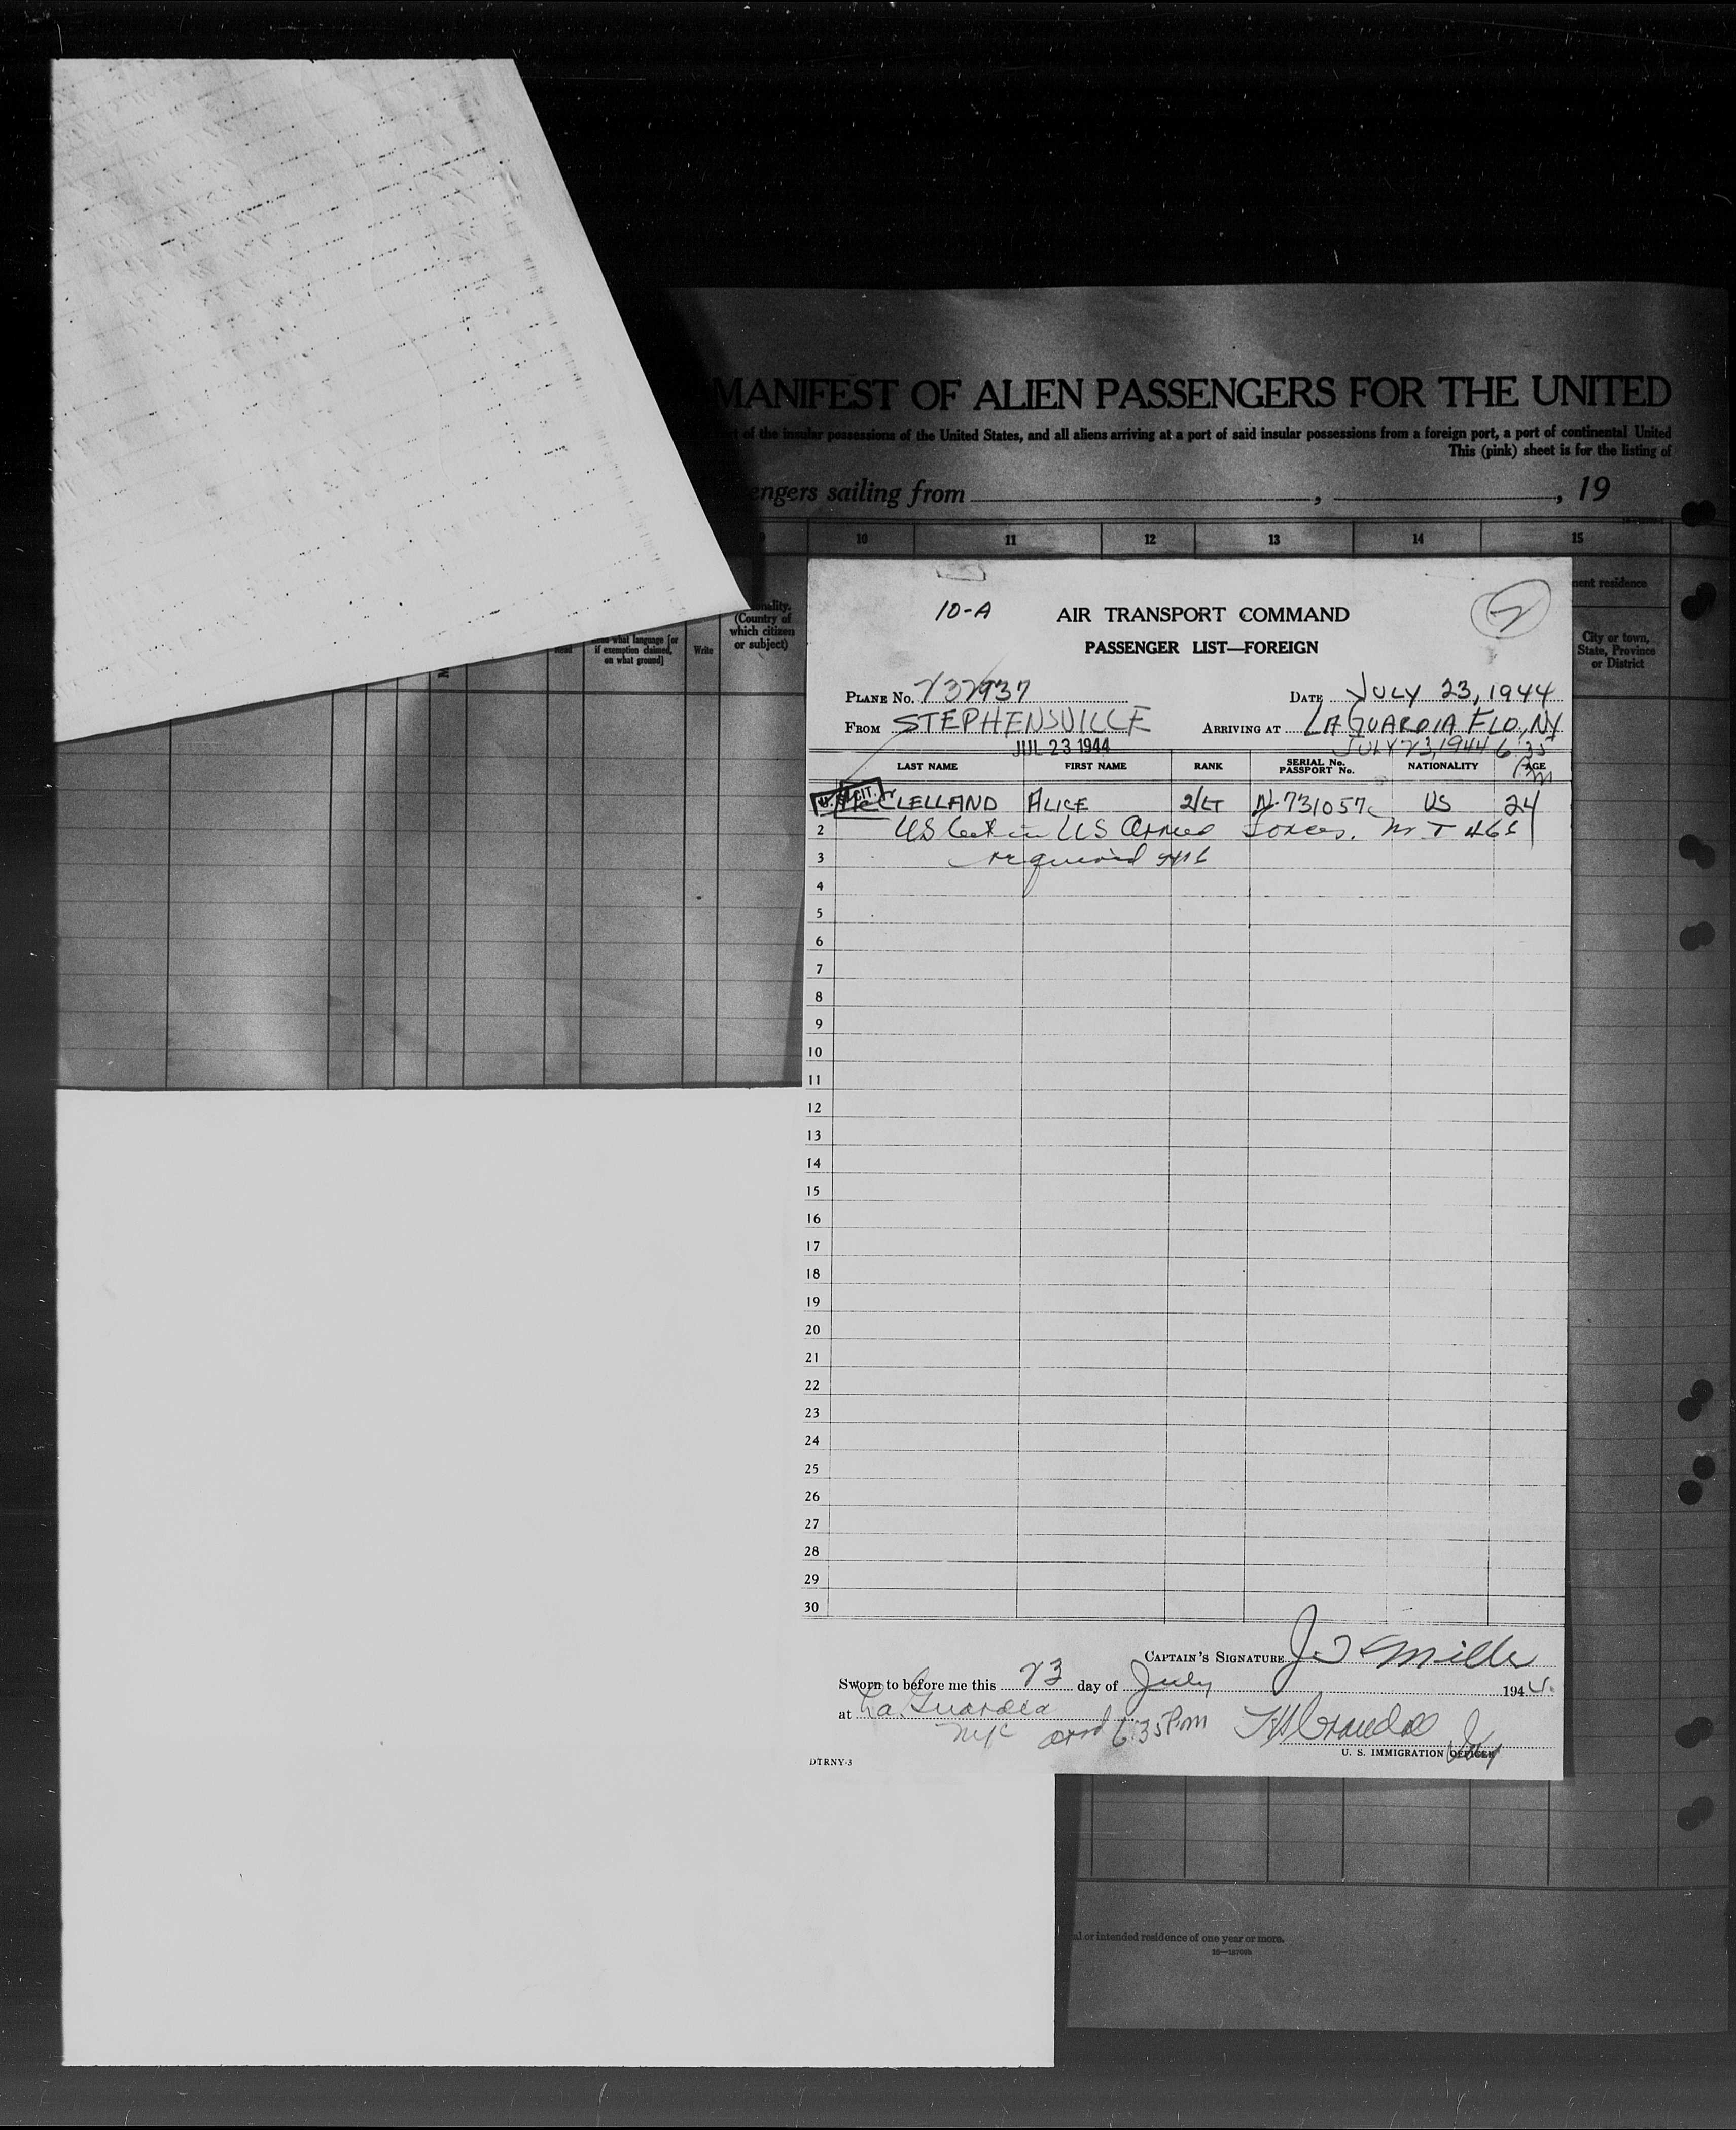 MANIFEST OF ALIEN PASSENGERS FOR THE UNITED
of the insular possessions of the United States, and all aliens arriving at a port of said insular possessions from a foreign port, a port of continental United
This (pink) sheet is for the listing of
engers sailing from , , 19
10 11 12 13 14 15
nent residence
City or town,
State, Province
or District
onality.
(Country of
which citizen
or subject)
Read
what language [or
if exemption claimed,
on what ground]
Write
10-A
AIR TRANSPORT COMMAND
2
PASSENGER LIST—FOREIGN
PLANE No. 232937 DATE JULY 23, 1944
FROM STEPHENSVILLE ARRIVING AT LA GUARDIA FLD., NY
JUL 23 1944 JULY 23, 1944 6:35 Pm
LAST NAME FIRST NAME RANK SERIAL No. PASSPORT No. NATIONALITY AGE
U.S. CIT.
McCLELLAND ALICE 2/LT N-731057 US 24
2 US in US Armed Forces. no
3 required
4
5
6
7
8
9
10
11
12
13
14
15
16
17
18
19
20
21
22
23
24
25
26
27
28
29
30
CAPTAIN'S SIGNATURE
Sworn to before me this 23 day of July 1944.
at La Guardia
NYC arrd 6:35 Pm
U. S. IMMIGRATION OFFICER
DTRNY-3
al or intended residence of one year or more.